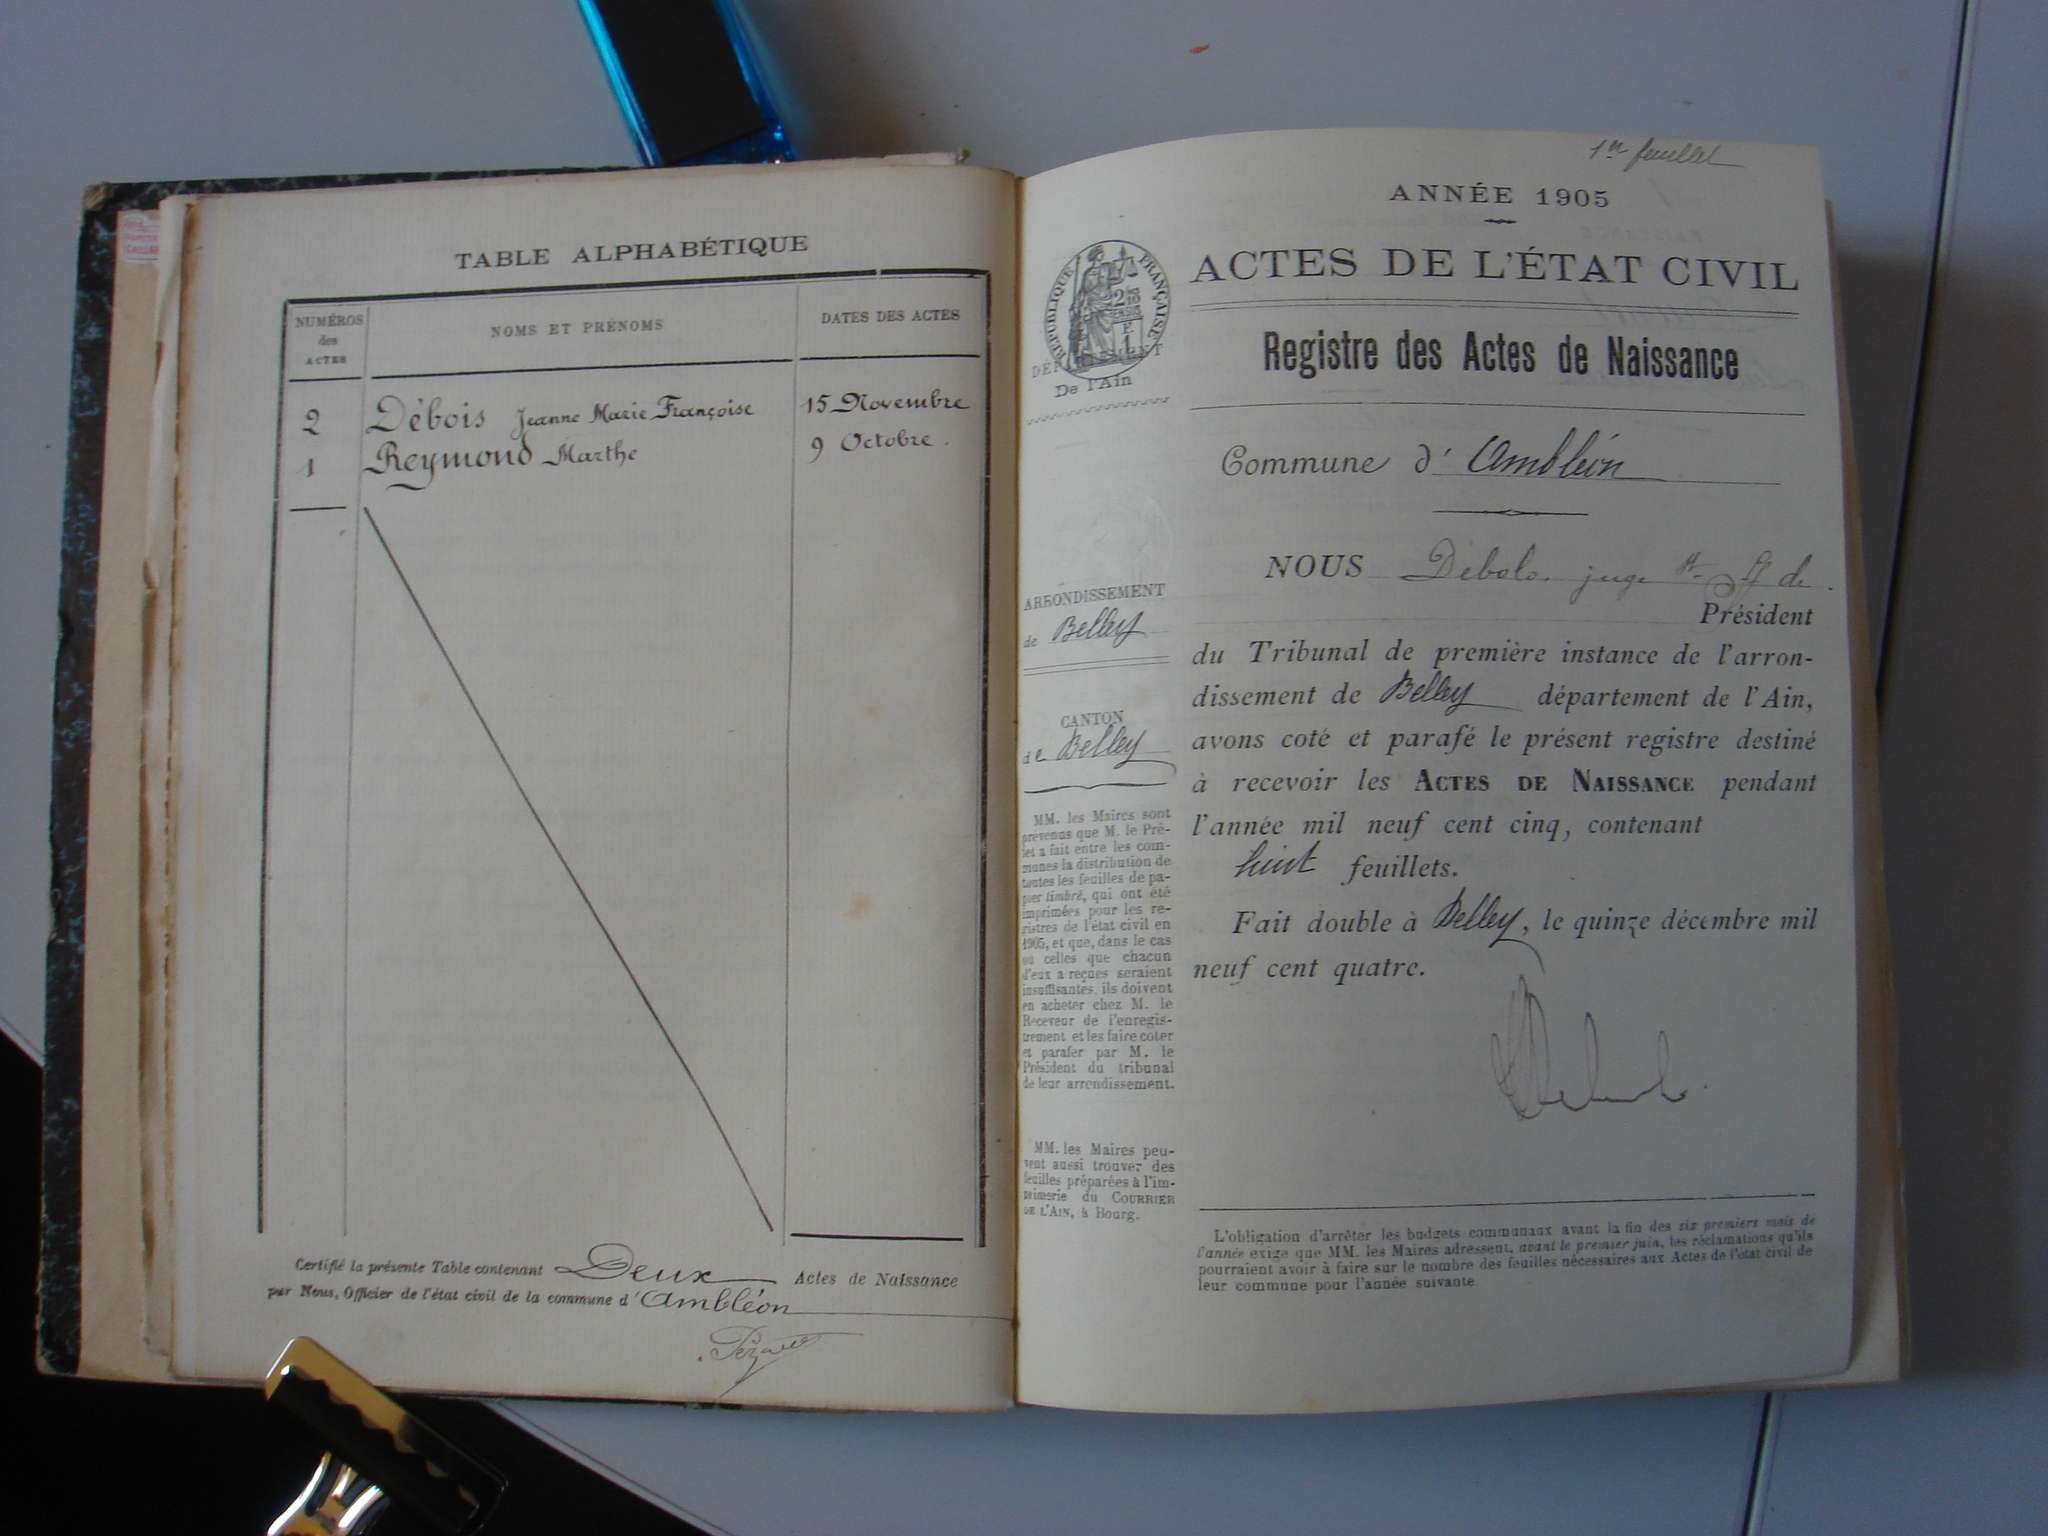 TABLE ALPHABÉTIQUE
NUMÉROS
des
ACTES
NOMS ET PRÉNOMS
DATES DES ACTES
2 Débois Jeanne Marie Françoise 15 Novembre
1 Reymond Marthe 9 Octobre.
Certifié la présente Table contenant Deux Actes de Naissance
par Nous, Officier de l'état civil de la commune d'Ambléon
1er feuillet
ANNÉE 1905
ACTES DE L'ÉTAT CIVIL
RÉPUBLIQUE FRANÇAISE
DÉPARTEMENT
De l'Ain
Registre des Actes de Naissance
Commune d'Ambléon
NOUS juge de
Président
du Tribunal de première instance de l'arron-
dissement de Belley département de l'Ain,
avons coté et parafé le présent registre destiné
à recevoir les ACTES DE NAISSANCE pendant
l'année mil neuf cent cinq, contenant
huit feuillets.
Fait double à Belley, le quinze décembre mil
neuf cent quatre.
ARRONDISSEMENT
de Belley
CANTON
de Belley
MM. les Maires sont
prévenus que M. le Pré-
fet a fait entre les com-
munes la distribution de
toutes les feuilles de pa-
per timbré, qui ont été
imprimées pour les re-
gistres de l'état civil en
1905, et que, dans le cas
où celles que chacun
d'eux a reçues seraient
insuffisantes, ils doivent
en acheter chez M. le
Receveur de l'enregis-
trement et les faire coter
et parafer par M. le
Président du tribunal
de leur arrondissement.
MM. les Maires peu-
vent aussi trouver des
feuilles préparées à l'im-
primerie du COURRIER
DE L'AIN, à Bourg.
L'obligation d'arrêter les budgets communaux avant la fin des six premiers mois de
l'année exige que MM. les Maires adressent, avant le premier juin, les réclamations qu'ils
pourraient avoir à faire sur le nombre des feuilles nécessaires aux Actes de l'état civil de
leur commune pour l'année suivante